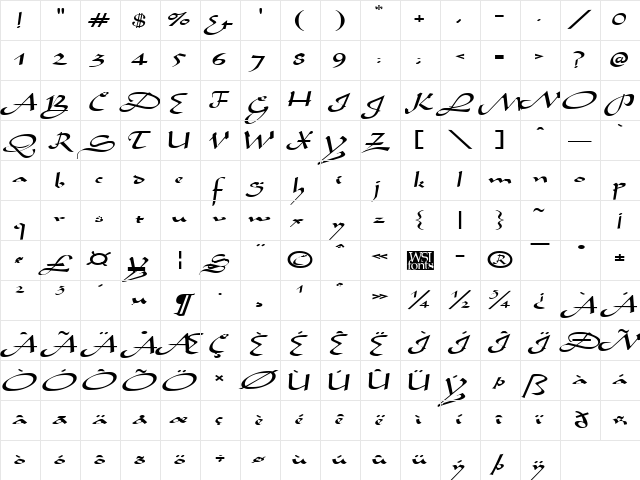 ! " # $ % & ' ( ) * + , - . / 0
1 2 3 4 5 6 7 8 9 : ; < = > ? @
A B C D E F G H I J K L M N O P
Q R S T U V W X Y Z [ \ ] ^ _ `
a b c d e f g h i j k l m n o p
q r s t u v w x y z { | } ~ ¡
¢ £ ¤ ¥ ¦ § ¨ © ª « WSI fonts - ® ¯ ° ±
² ³ ´ µ ¶ · ¸ ¹ º » ¼ ½ ¾ ¿ À Á
Â Ã Ä Å Æ Ç È É Ê Ë Ì Í Î Ï Ð Ñ
Ò Ó Ô Õ Ö × Ø Ù Ú Û Ü Ý þ ß à á
â ã ä å æ ç è é ê ë ì í î ï ð ñ
ò ó ô õ ö ÷ ø ù ú û ü ý þ ÿ